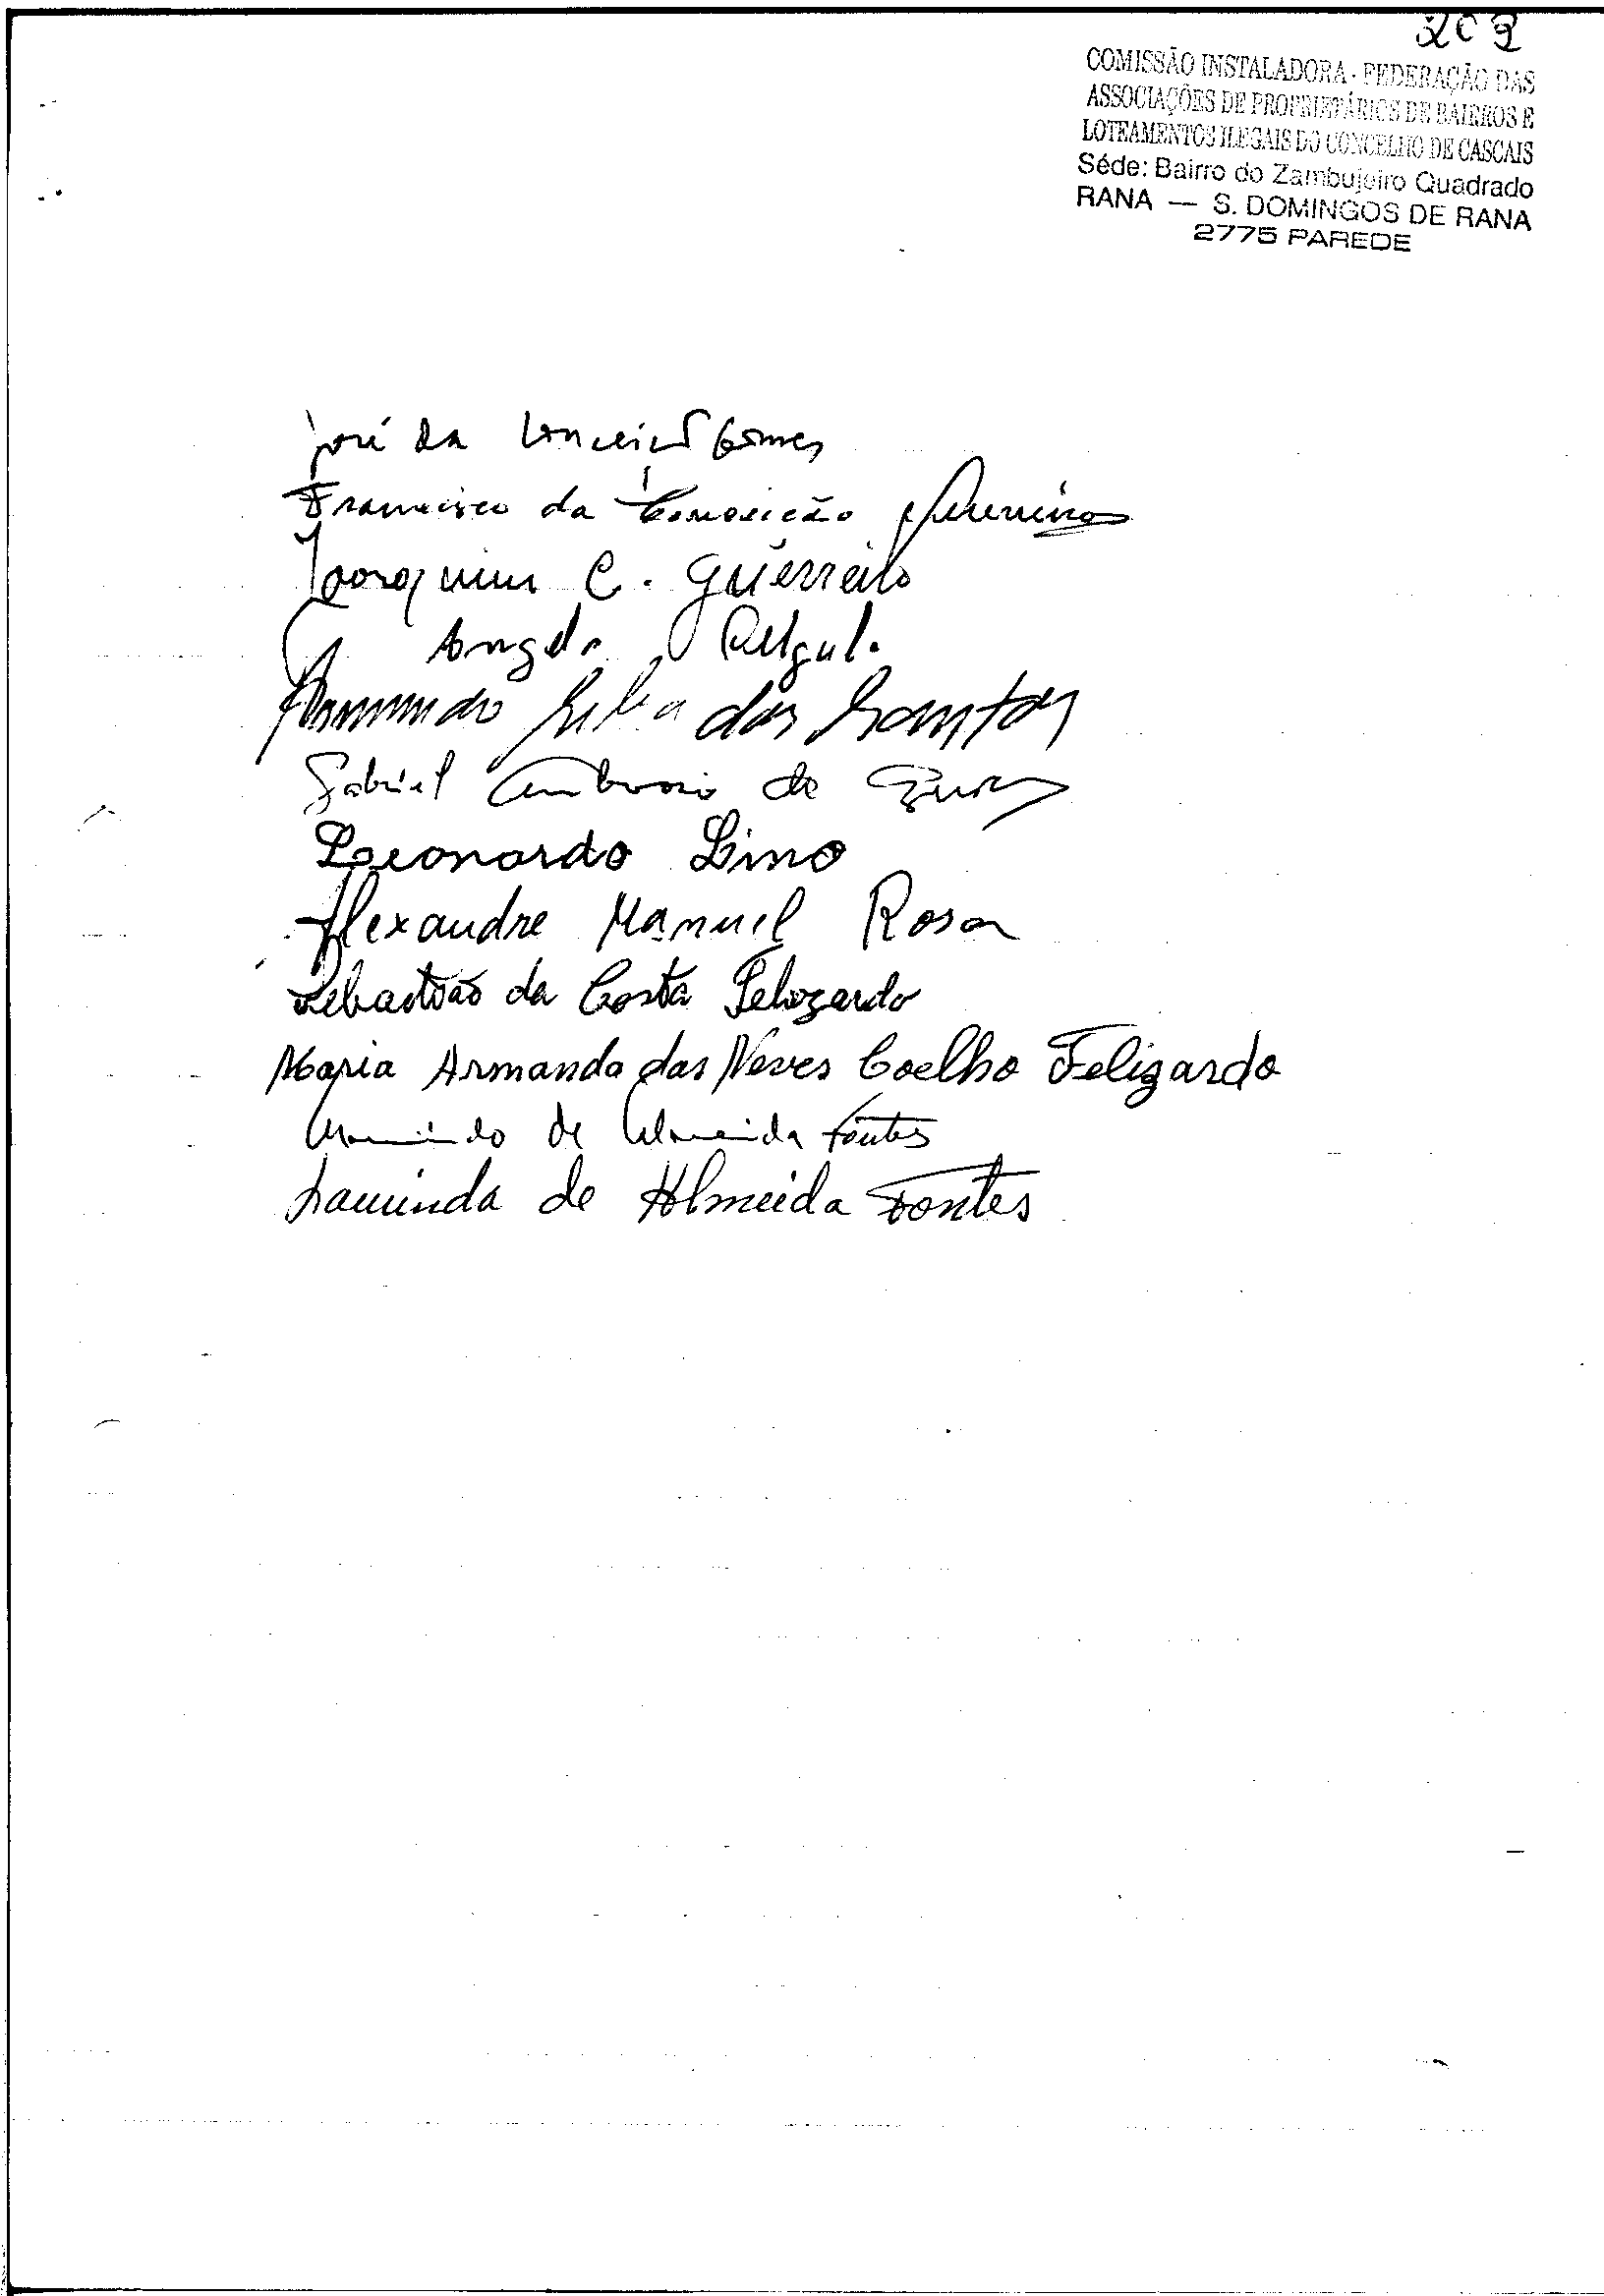 202
COMISSÃO INSTALADORA - FEDERAÇÃO DAS
ASSOCIAÇÕES DE PROPRIETÁRIOS DE BAIRROS E
LOTEAMENTOS ILEGAIS DO CONCELHO DE CASCAIS
Séde: Bairro do Zambujeiro Quadrado
RANA — S. DOMINGOS DE RANA
2775 PAREDE
José da Conceição Gomes
Francisco da Conceição
Joaquim C. Guerreiro
Angelo
Armindo Silva dos Santos
Gabriel Ambrosio de
Leonardo Lino
Alexandre Manuel Rosa
Sebastião da Costa Felizardo
Maria Armanda das Neves Coelho Felizardo
Armindo de Almeida Fontes
Laurinda de Almeida Fontes